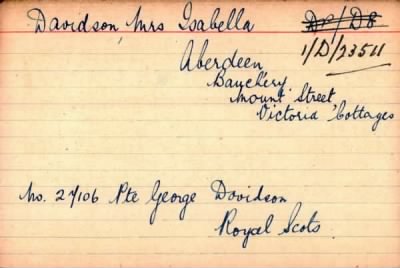 Davidson, Mrs Isabella
1/D/23511
Aberdeen
Banchery
Mount Street
Victoria Cottages
No. 27106 Pte George Davidson
Royal Scots.